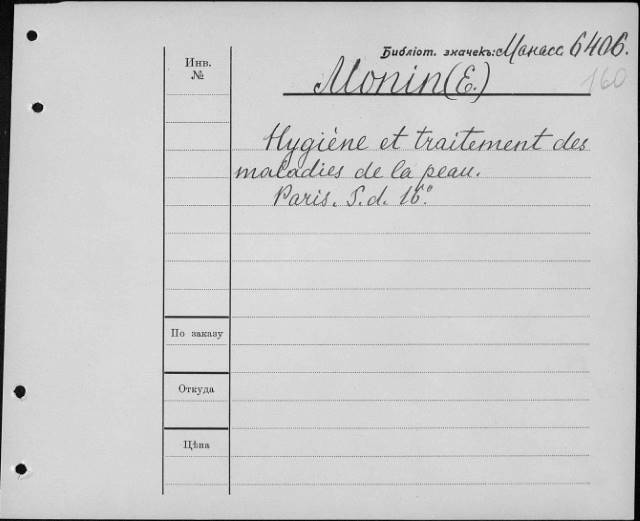 Библіот. значекъ: Манасс. 6406.
160
Инв.
№
Monin (E.)
Hygiéne et traitement des
maladies de la peau.
Paris. S.d. 16°.
По заказу
Откуда
Цѣна